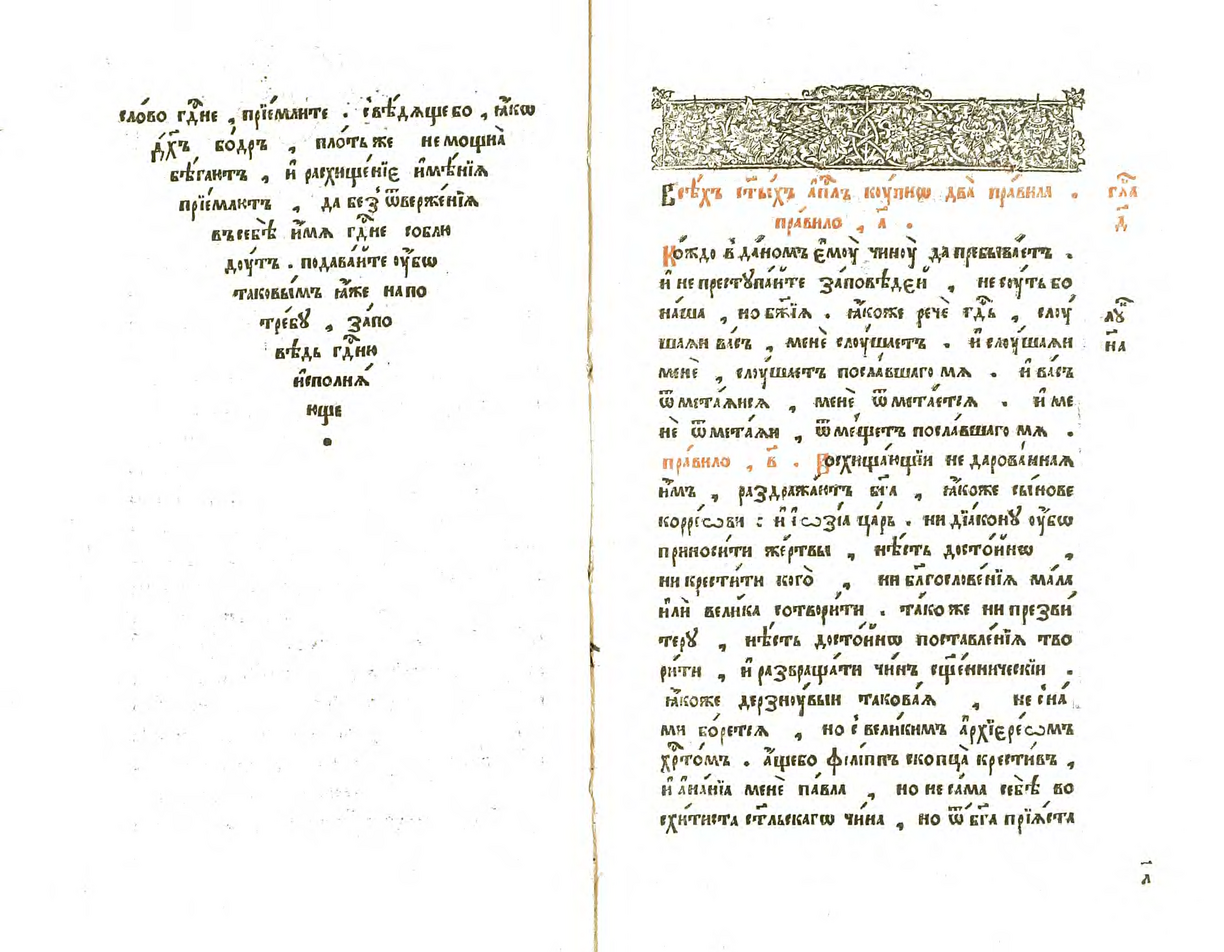 сло́во гдⷭ҇не , прїе́млите . свѣ́дѧще бо , ꙗ҆́кѡ
дх҃ъ бо́дръ , пло́ть же немощна̀
бѣ́гаютъ , и҆ расхище́нїе и҆мѣ́нїѧ
прїе́млютъ , да без̾ ѿверже́нїѧ
въ себѣ̀ и҆́мѧ гдⷭ҇не соблю
доу́тъ . подава́йте оу҆́бѡ
таковы́мъ ꙗ҆́же на по
тре́бꙋ , за́по
вѣдь гдⷭ҇ню
и҆сполнѧ́
юще
Всѣ́хъ ст҃ы́хъ а҆пⷭ҇лъ коу́пнѡ два̀ пра́вила .
пра́вило , а҃ .
Ко́ждо в̾ да́номъ є҆моу̀ чиноу̀ да пребыва́етъ .
и҆ не престꙋпа́йте за́повѣдей , не соу́ть бо
на́ша , но бж҃їѧ . ꙗ҆́коже речѐ гдⷭ҇ь , слоу́
шаѧи ва́съ , менѐ слоу́шаетъ . и҆ слоу́шаѧи
менѐ , слоу́шаетъ посла́вшаго мѧ . и҆ ва́съ
ѿмета́ѧисѧ , менѐ ѿмета́етсѧ . и҆ ме
нѐ ѿмета́ѧи , ѿме́щетъ посла́вшаго мѧ .
пра́вило , в҃ . Восхища́ющїи не дарова́ннаѧ
и҆̀мъ , раздража́ютъ бг҃а , ꙗ҆́коже сы́нове
коррє́ѡви : и҆ і҆ѡзі́а ца́рь . ни дїа́конꙋ оу҆́бѡ
приноси́ти же́ртвы , нѣ́сть досто́йнѡ ,
ни крести́ти кого̀ , ни блгⷭ҇ове́нїѧ ма́ла
и҆лѝ вели́ка сотвори́ти . та́коже ни презви́
терꙋ , нѣ́сть досто́йнѡ поставле́нїѧ тво
ри́ти , и҆ развраща́ти чи́нъ сщ҃е́нническїи .
ꙗ҆́коже дерзноу́выи такова́ѧ , не с на́
ми бо́ретсѧ , но с вели́кимъ а҆рхїере́ѡмъ
хрⷭ҇то́мъ . а҆́ще бо фїлі́ппъ скопца̀ крести́въ ,
и҆ а҆на́нїа менѐ па́вла , но не са́ма себѣ̀ во
схи́тиста ст҃льскагѡ чи́на , но ѿ бг҃а прїѧ́ста
глⷡ҇а
д҃
лꙋⷦ҇
на
л҃